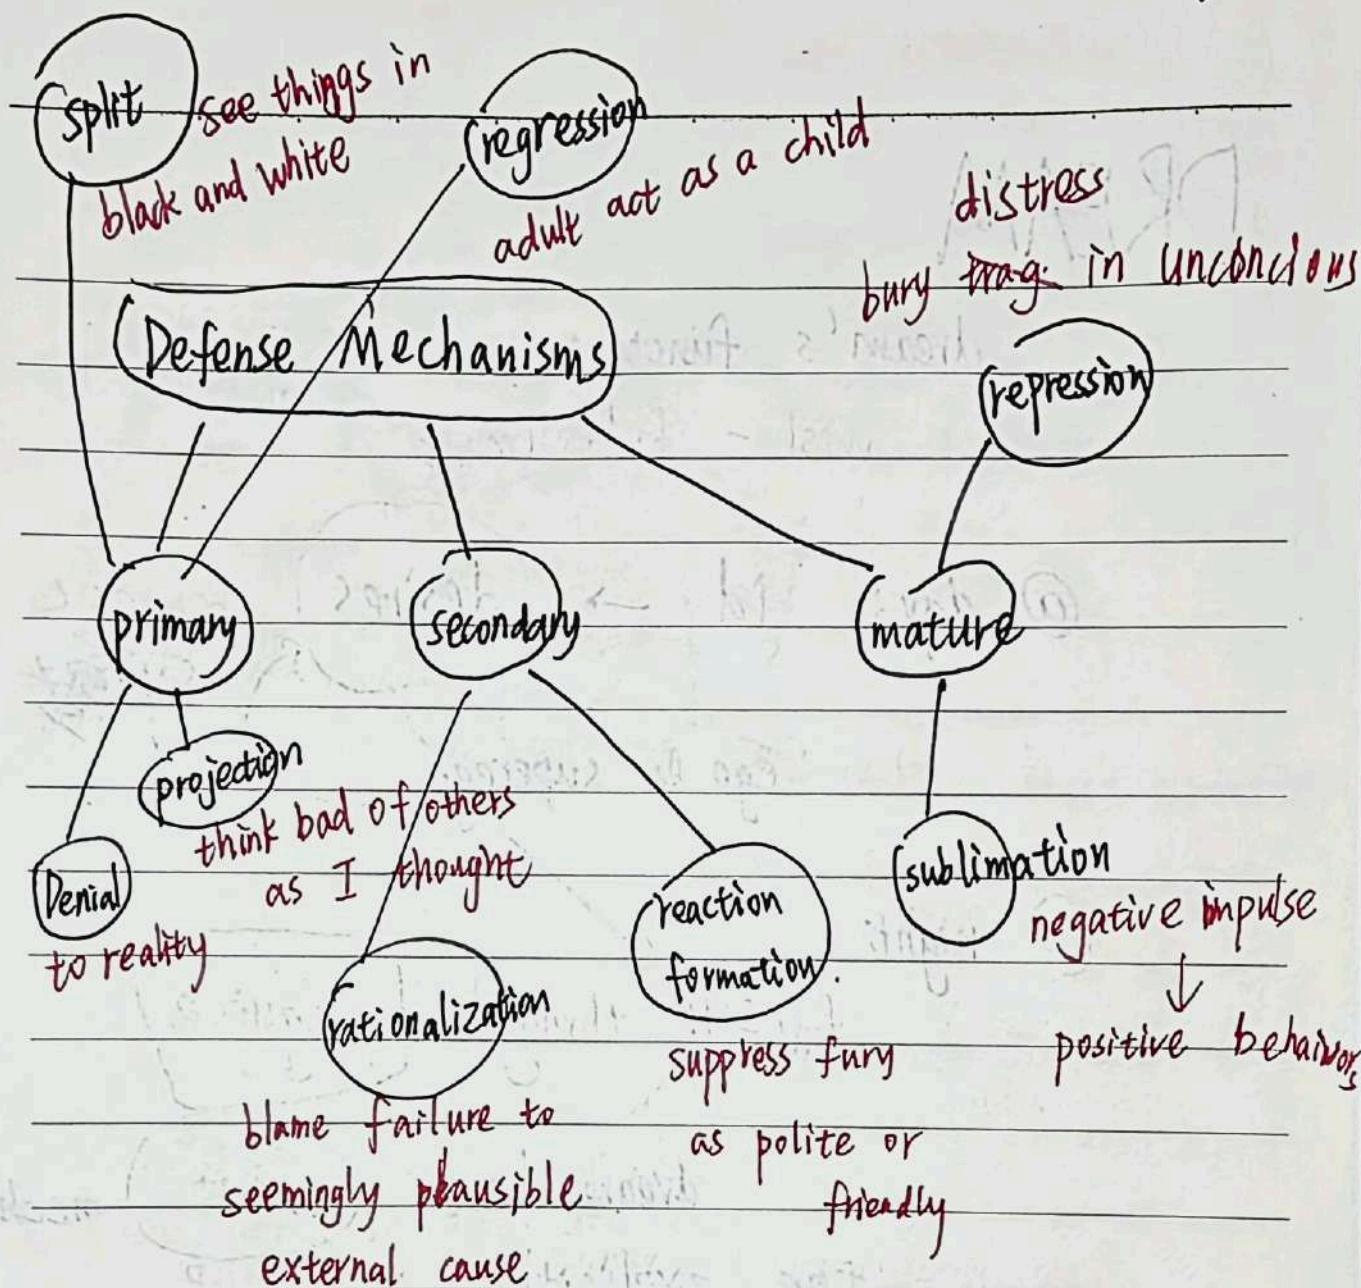 split
see things in
black and white
regression
adult act as a child
distress
bury trag. in unconcious
Defense Mechanisms
repression
primary
secondary
mature
projection
think bad of others
as I thought
Denial
to reality
rationalization
blame failure to
seemingly plausible
external cause
reaction
formation.
suppress fury
as polite or
friendly
sublimation
negative impulse
↓
positive behaivors